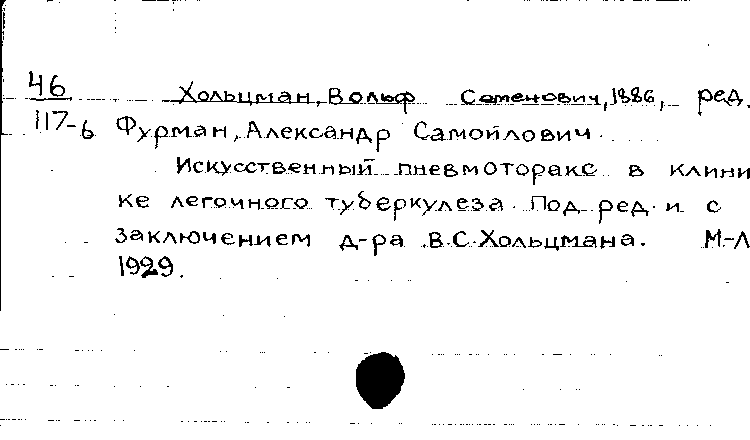 46 Хольцман, Вольф Семенович, 1886, ред.
117-6 Фурман, Александр Самойлович
Искусственный пневмоторакс в клини
ке легочного туберкулеза. Под ред. и с
заключением д-ра В.С.Хольцмана. М-Л
1929.